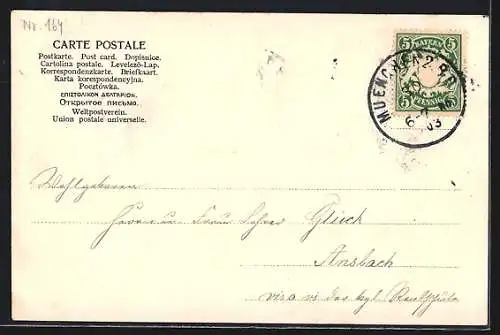 Nr. 164
CARTE POSTALE
Postkarte. Post card. Dopisnice.
Cartolina postale. Levelező-Lap.
Korrespondenzkarte. Briefkaart.
Karta korespondencyjna.
Pocztówka.
ΕΠΙΣΤΟΛΙΚΟΝ ΔΕΛΤΑΡΙΟΝ.
Открытое письмо.
Weltpostverein.
Union postale universelle.
5 BAYERN 5
5 PFENNIG 5
MUENCHEN 2 B.P.
6-7 N
03
Wohlgeboren
Herrn u. Frau Lehrer Gleich
Ansbach
vis a vis das kgl. Realschule